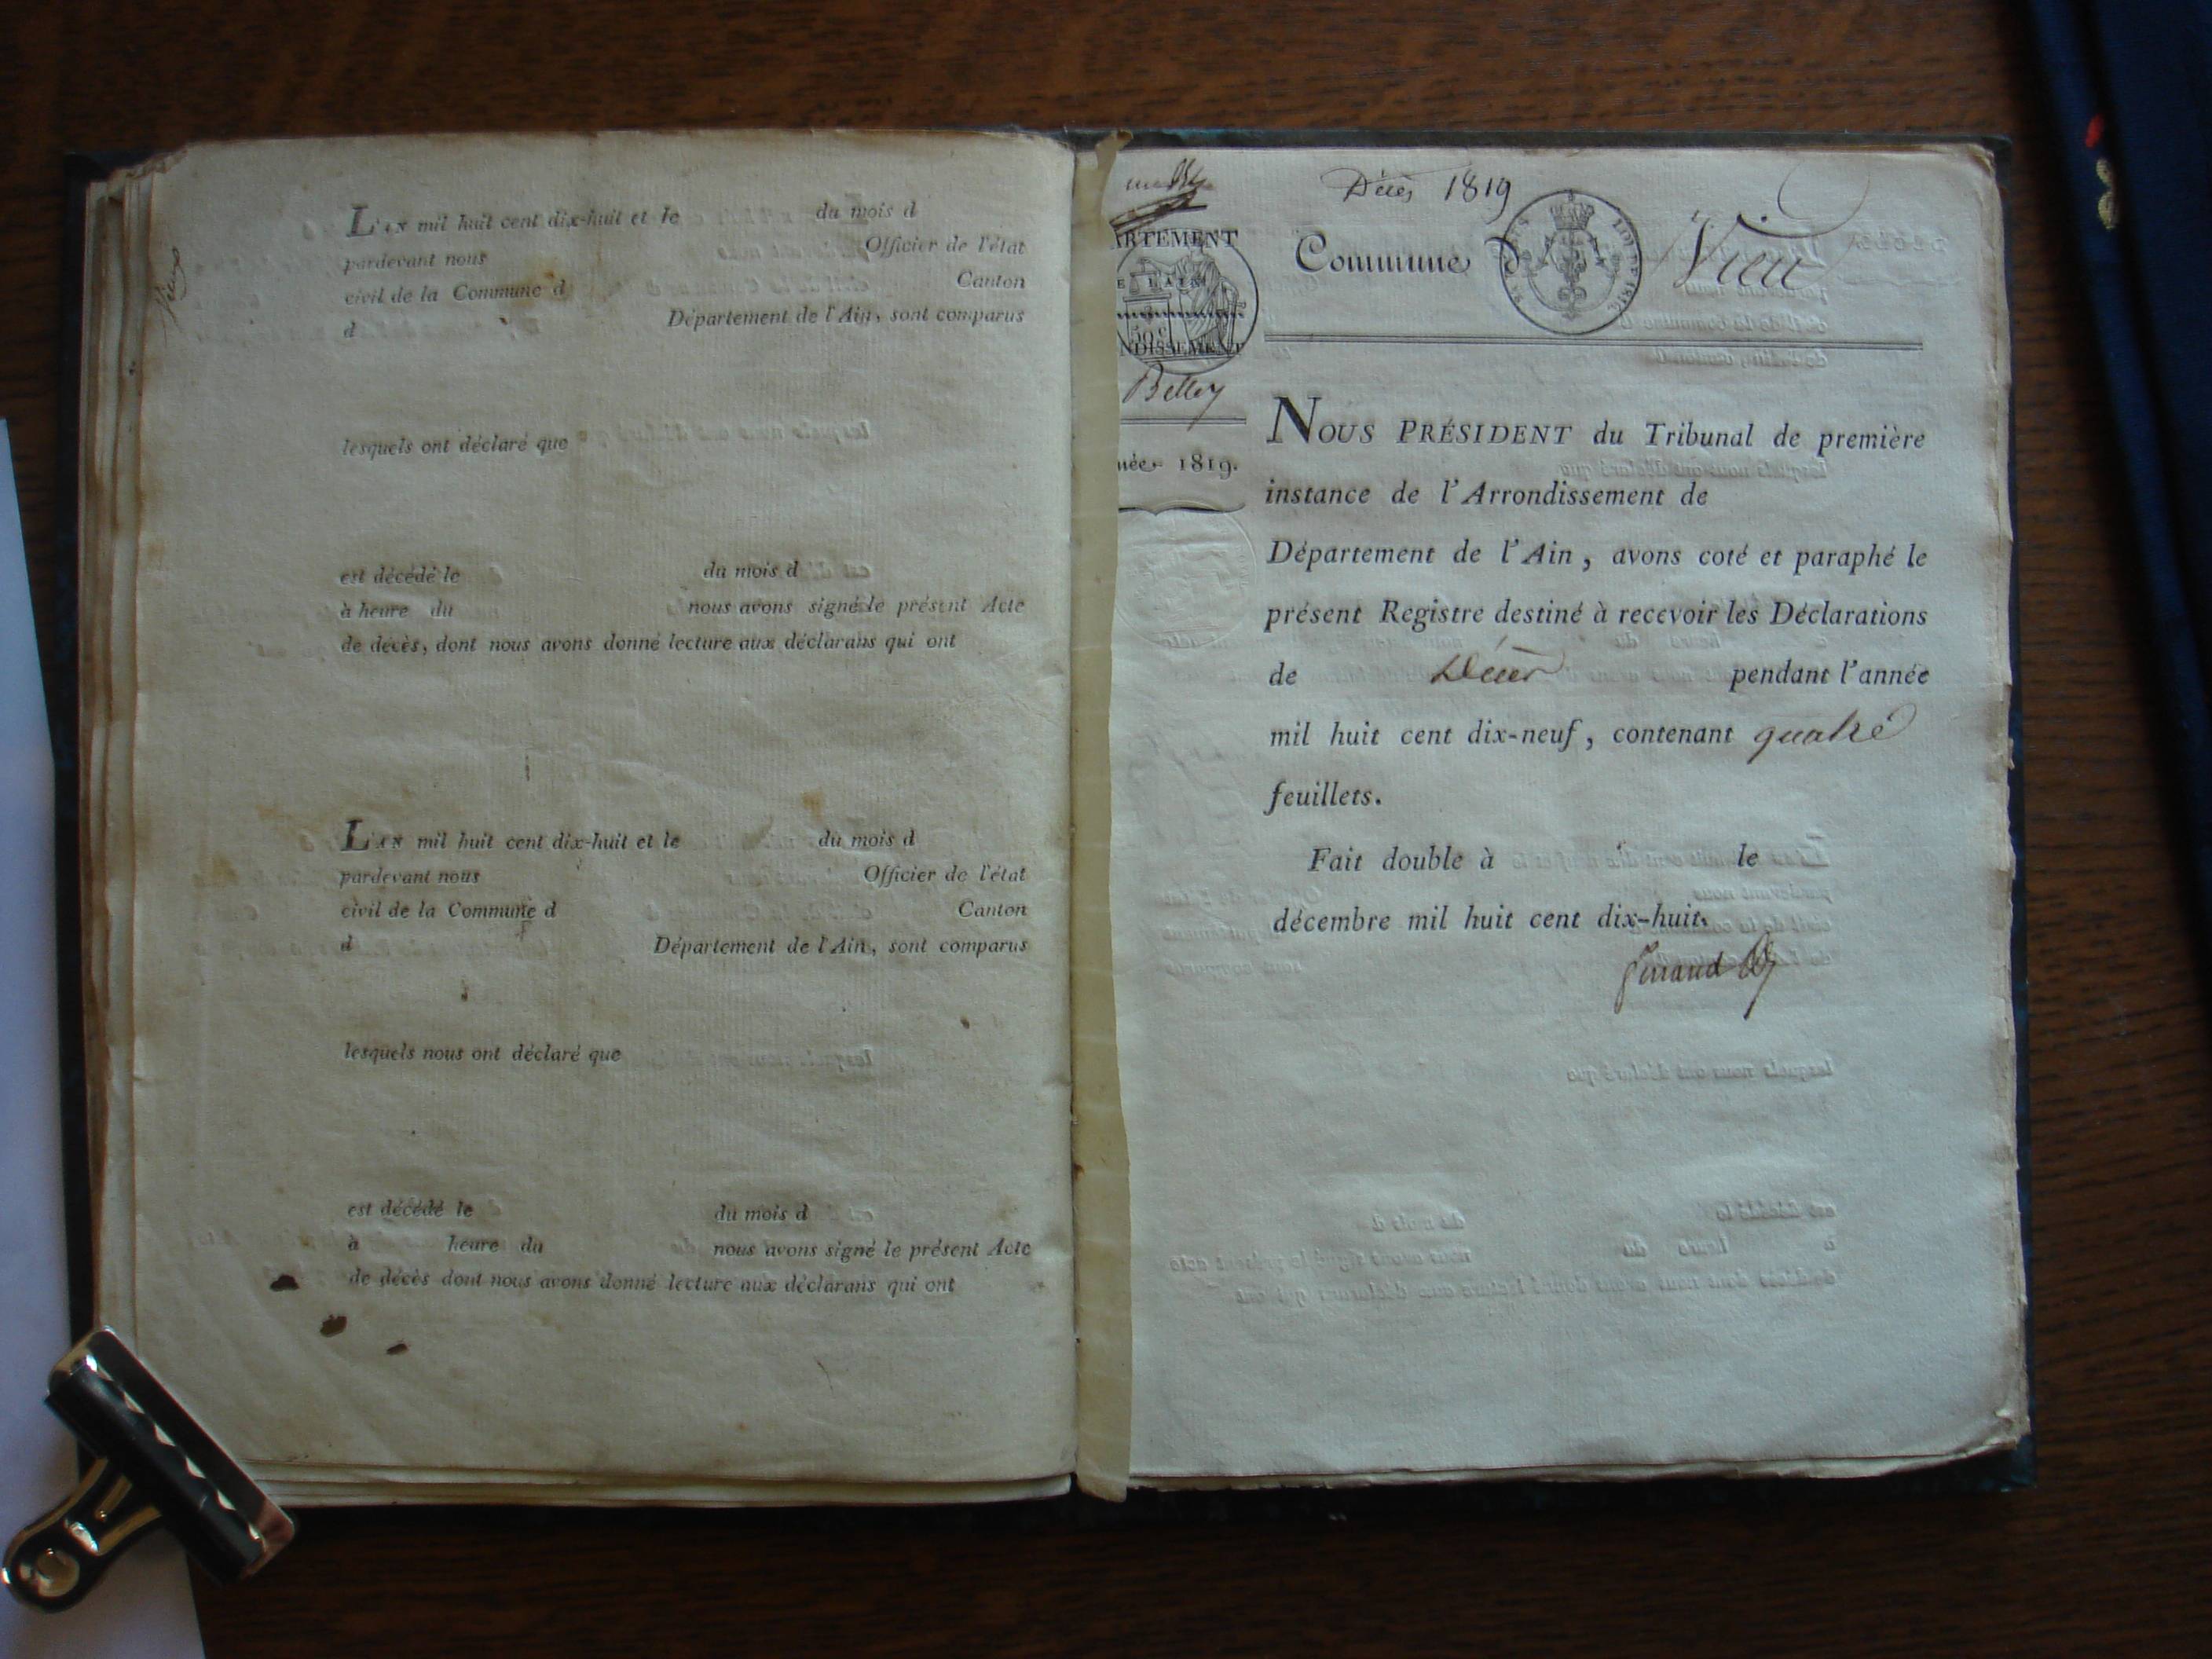 L'AN mil huit cent dix-huit et le du mois d
pardevant nous Officier de l'état
civil de la Commune d Canton
d Département de l'Ain, sont comparus
lesquels ont déclaré que
est décédé le du mois d
à heure du nous avons signé le présent Acte
de décès, dont nous avons donné lecture aux déclarans qui ont
L'AN mil huit cent dix-huit et le du mois d
pardevant nous Officier de l'état
civil de la Commune d Canton
d Département de l'Ain, sont comparus
lesquels nous ont déclaré que
est décédé le du mois d
à heure du nous avons signé le présent Acte
de décès dont nous avons donné lecture aux déclarans qui ont
ARTEMENT
E L'AIN
50 c
NDISSEMENT
Belley
née 1819.
Décès 1819
Commune d Vieu
NOUS PRÉSIDENT du Tribunal de première
instance de l'Arrondissement de
Département de l'Ain, avons coté et paraphé le
présent Registre destiné à recevoir les Déclarations
de Décès pendant l'année
mil huit cent dix-neuf, contenant quatre
feuillets.
Fait double à le
décembre mil huit cent dix-huit.